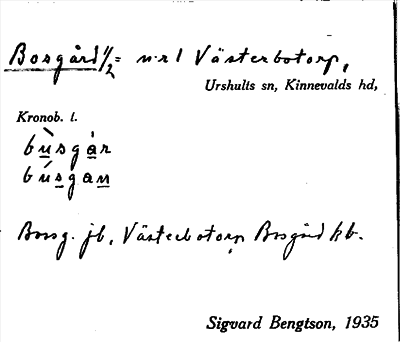 Bosgård 1/2 = n:r 1 Västerbotorp,
Urshults sn, Kinnevalds hd,
Kronob. l.
bùsgår
búsgan
Bosg. jb, Västerbotorp Bosgård kb.
Sigvard Bengtson, 1935